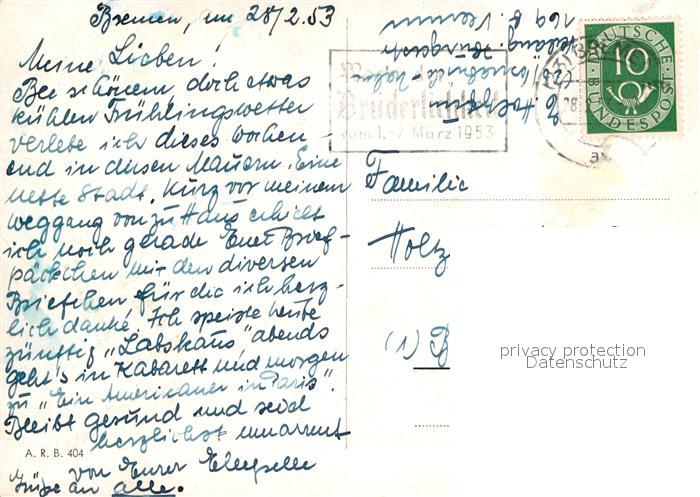 Bremen, am 28/2.53
Meine Lieben!
Bei schönem, doch etwas
kühlen Frühlingswetter
verlebe ich dieses Wochen-
end in diesen Mauern. Eine
nette Stadt. Kurz vor meinem
Weggang von zu Haus erhielt
ich noch gerade Euer Brief-
päckchen mit den diversen
Briefchen für die ich herz-
lich danke. Ich speiste heute
zünftig „Labskaus" abends
geht's in Kabarett und morgen
zu „Ein Amerikaner in Paris".
Bleibt gesund und seid
herzlichst umarmt
von Eurer
Grüße an alle.
A. R. B. 404
Brüderlichkeit
vom 1.-7. März 1953
DEUTSCHE
10
BUNDESPOST
Familie
Holtz
(1) B
privacy protection
Datenschutz